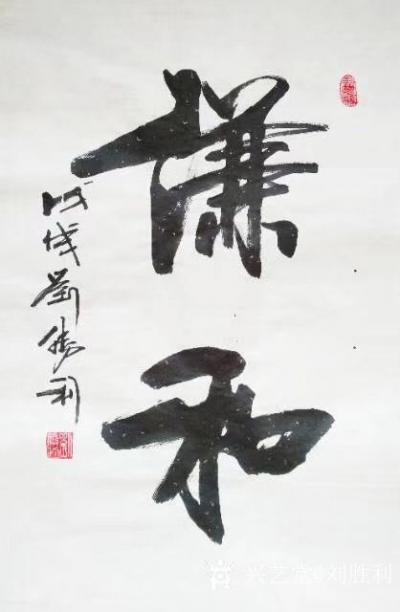 謙和
戊戌劉勝利
兴艺堂@刘胜利